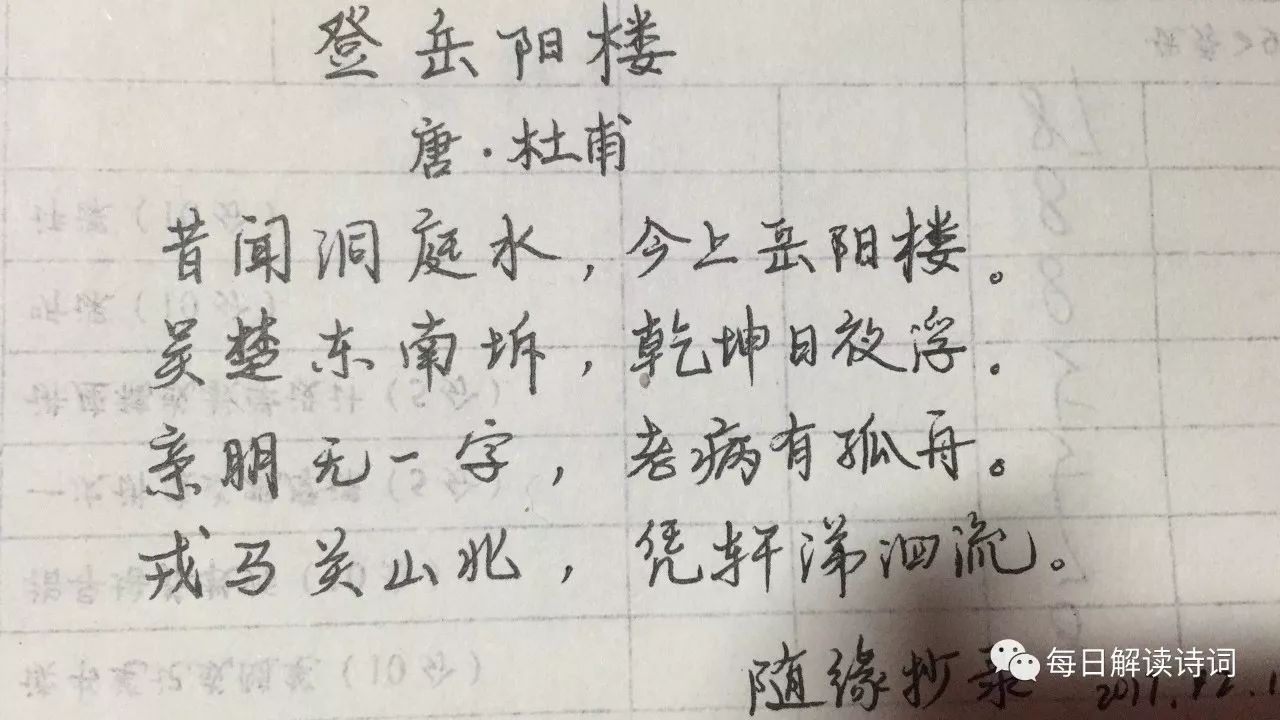 登岳阳楼
唐·杜甫
昔闻洞庭水，今上岳阳楼。
吴楚东南坼，乾坤日夜浮．
亲朋无一字，老病有孤舟。
戎马关山北，凭轩涕泗流。
随缘抄录
每日解读诗词